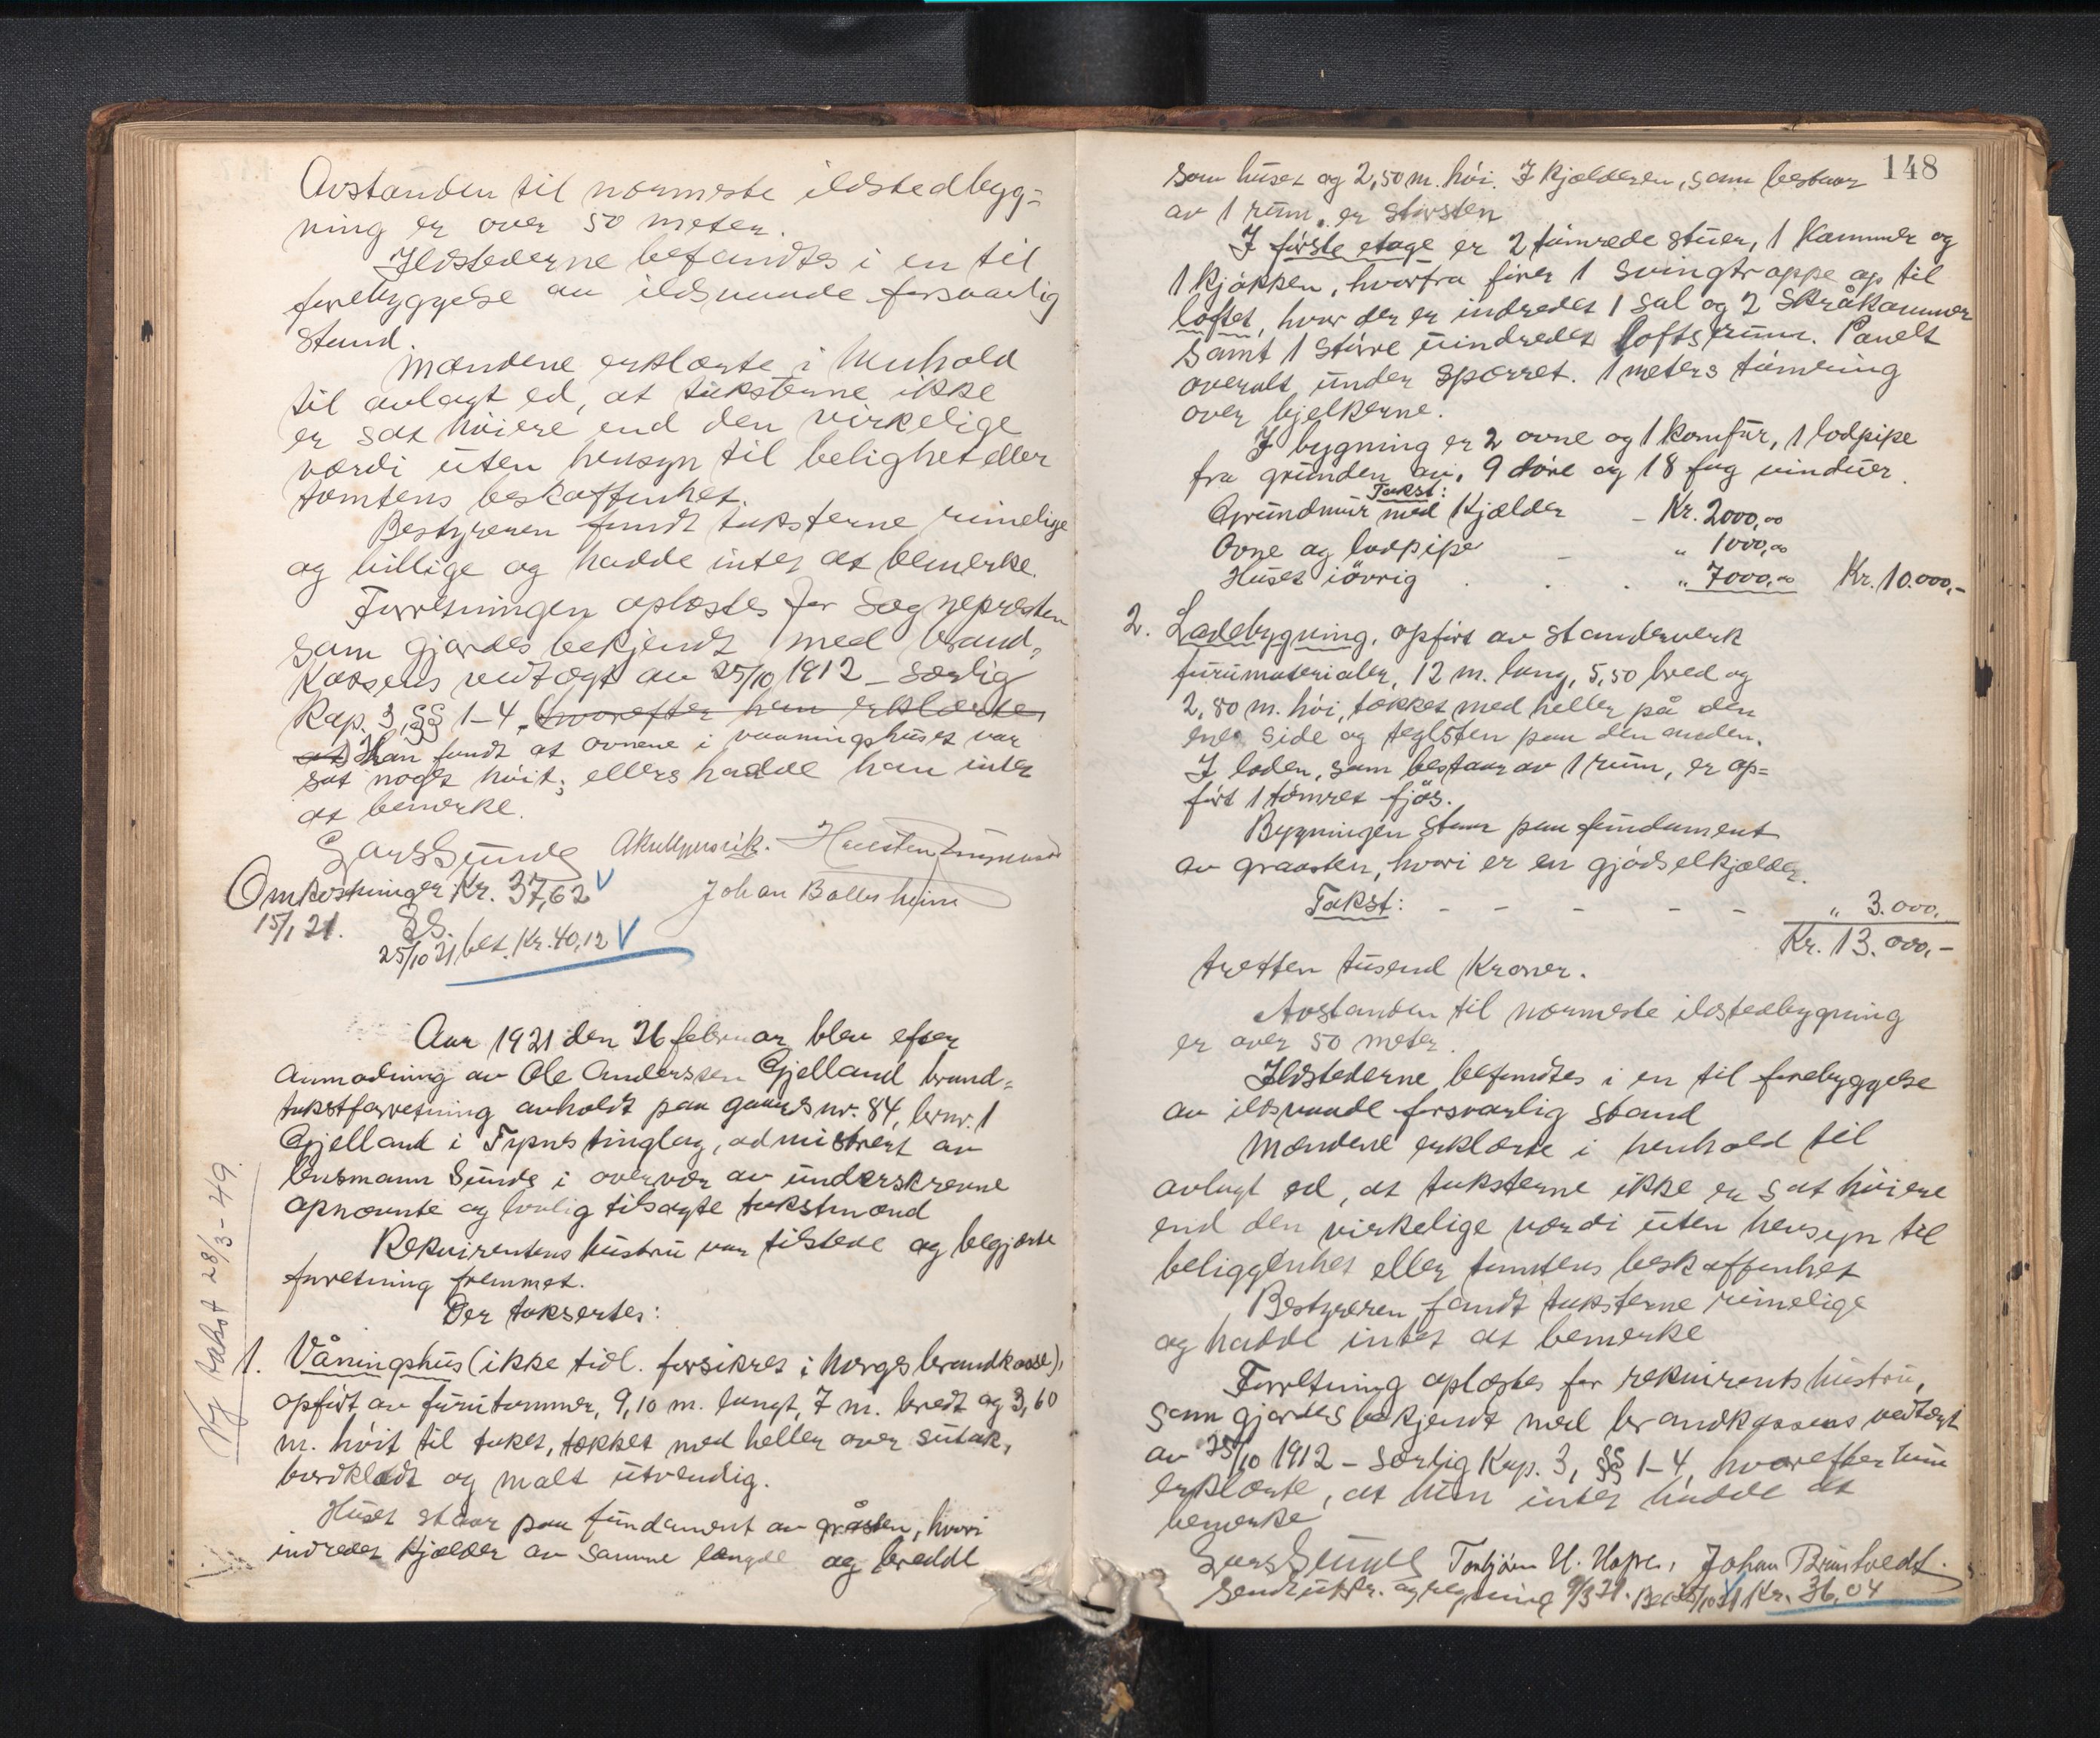 Avstanden til nærmeste ildstedbyg=
ning er over 50 meter.
Ildstederne befandtes i en til
forebyggelse av ildsvaade forsvarlig
stand.
Mændene erklærte i henhold
til avlagt ed, at taksterne ikke
er sat høiere end den virkelige
værdi uten hensyn til belighet eller
tomtens beskaffenhet.
Bestyreren fandt taksterne rimelige
og billige og hadde intet at bemerke.
Forretningen oplæstes for Sognepresten
som gjordes bekjendt med brand=
kassens vedtægt av 25/10 1912 – særlig
Kap. 3, §§ 1-4, hvorefter han erklærte,
at Han fandt at ovnene i vaaningshuset var
sat noget høit; ellers hadde han intet
at bemerke.
Lars Sunde
Johan Ballesheim
Omkostninger Kr. 37,62
15/1 21. LS.
25/10 21 bet. Kr. 40,12
Aar 1921 den 26 februar blev efter
anmodning av Ole Anderssen Gjelland brand=
takstforretning avholdt paa gaards nr. 84, brnr. 1
Gjelland i Fypnes tinglag, admistrert av
lensmann Sunde i overvær av underskrevne
opnævnte og lovlig tilsagte takstmænd
Rekvirentens hustru var tilstede og begjærte
forretning fremmet.
Der taksertes:
Ny takst 28/3-49.
1. Våningshus (ikke tidl. forsikret i Norges brandkasse),
opført av furutømmer, 9,10 m. langt, 7 m. bredt og 3,60
m. høit til taket, tækket med heller over sutak,
bordklædt og malt utvendig.
Huset staar paa fundament av gråsten, hvori
indredet kjælder av samme længde og bredde
148
som huset og 2,50 m. høi. I kjælderen, som bestaar
av 1 rum, er størsten
I første etage er 2 tømrede stuer, 1 kammer og
1 kjøkken, hvorfra fører 1 svingtrappe op til
loftet, hvor der er indredet 1 sal og 2 skråkammer
samt 1 større uindredet loftsrum. Panelt
overalt under sperret. 1 meters tømring
over bjelkerne.
I bygning er 2 ovne og 1 komfur, 1 lodpipe
fra grunden av, 9 døre og 18 fag vinduer.
Takst:
Grundmur med kjælder – Kr. 2000,00
Ovne og lodpipe – " 1000,00
Huset iøvrig . . . " 7000,00 Kr. 10.000,-
2. Ladebygning, opført av standerverk
furumaterialer, 12 m. lang, 5,50 bred og
2,80 m. høi, tækket med heller på den
ene side og teglsten paa den anden.
I laden, som bestaar av 1 rum, er op=
ført 1 tømret fjøs.
Bygningen staar paa fundament
av graasten, hvori er en gjødselkjælder.
Takst: – – – – – " 3.000,
Kr. 13.000,-
tretten tusend Kroner.
Avstanden til nærmeste ildstedbygning
er over 50 meter.
Ildstederne befandtes i en til forebyggelse
av ildsvaade forsvarlig stand
Mændene erklærte i henhold til
avlagt ed, at taksterne ikke er sat høiere
end den virkelige værdi uten hensyn til
beliggenhet eller tomtens beskaffenhet
Bestyreren fandt taksterne rimelige
og hadde intet at bemerke
Forretning oplæstes for rekvirents hustru,
som gjordes bekjendt med brandkassens vedtægt
av 25/10 1912 – særlig Kap. 3, §§ 1-4, hvorefter hun
erklærte, at hun intet hadde at
bemerke
Lars Sunde Torbjørn H. Hope, Johan Bruntvedt.
Sendt utskr. og regning 9/3 21. Bet. 25/10 21 Kr. 36,04